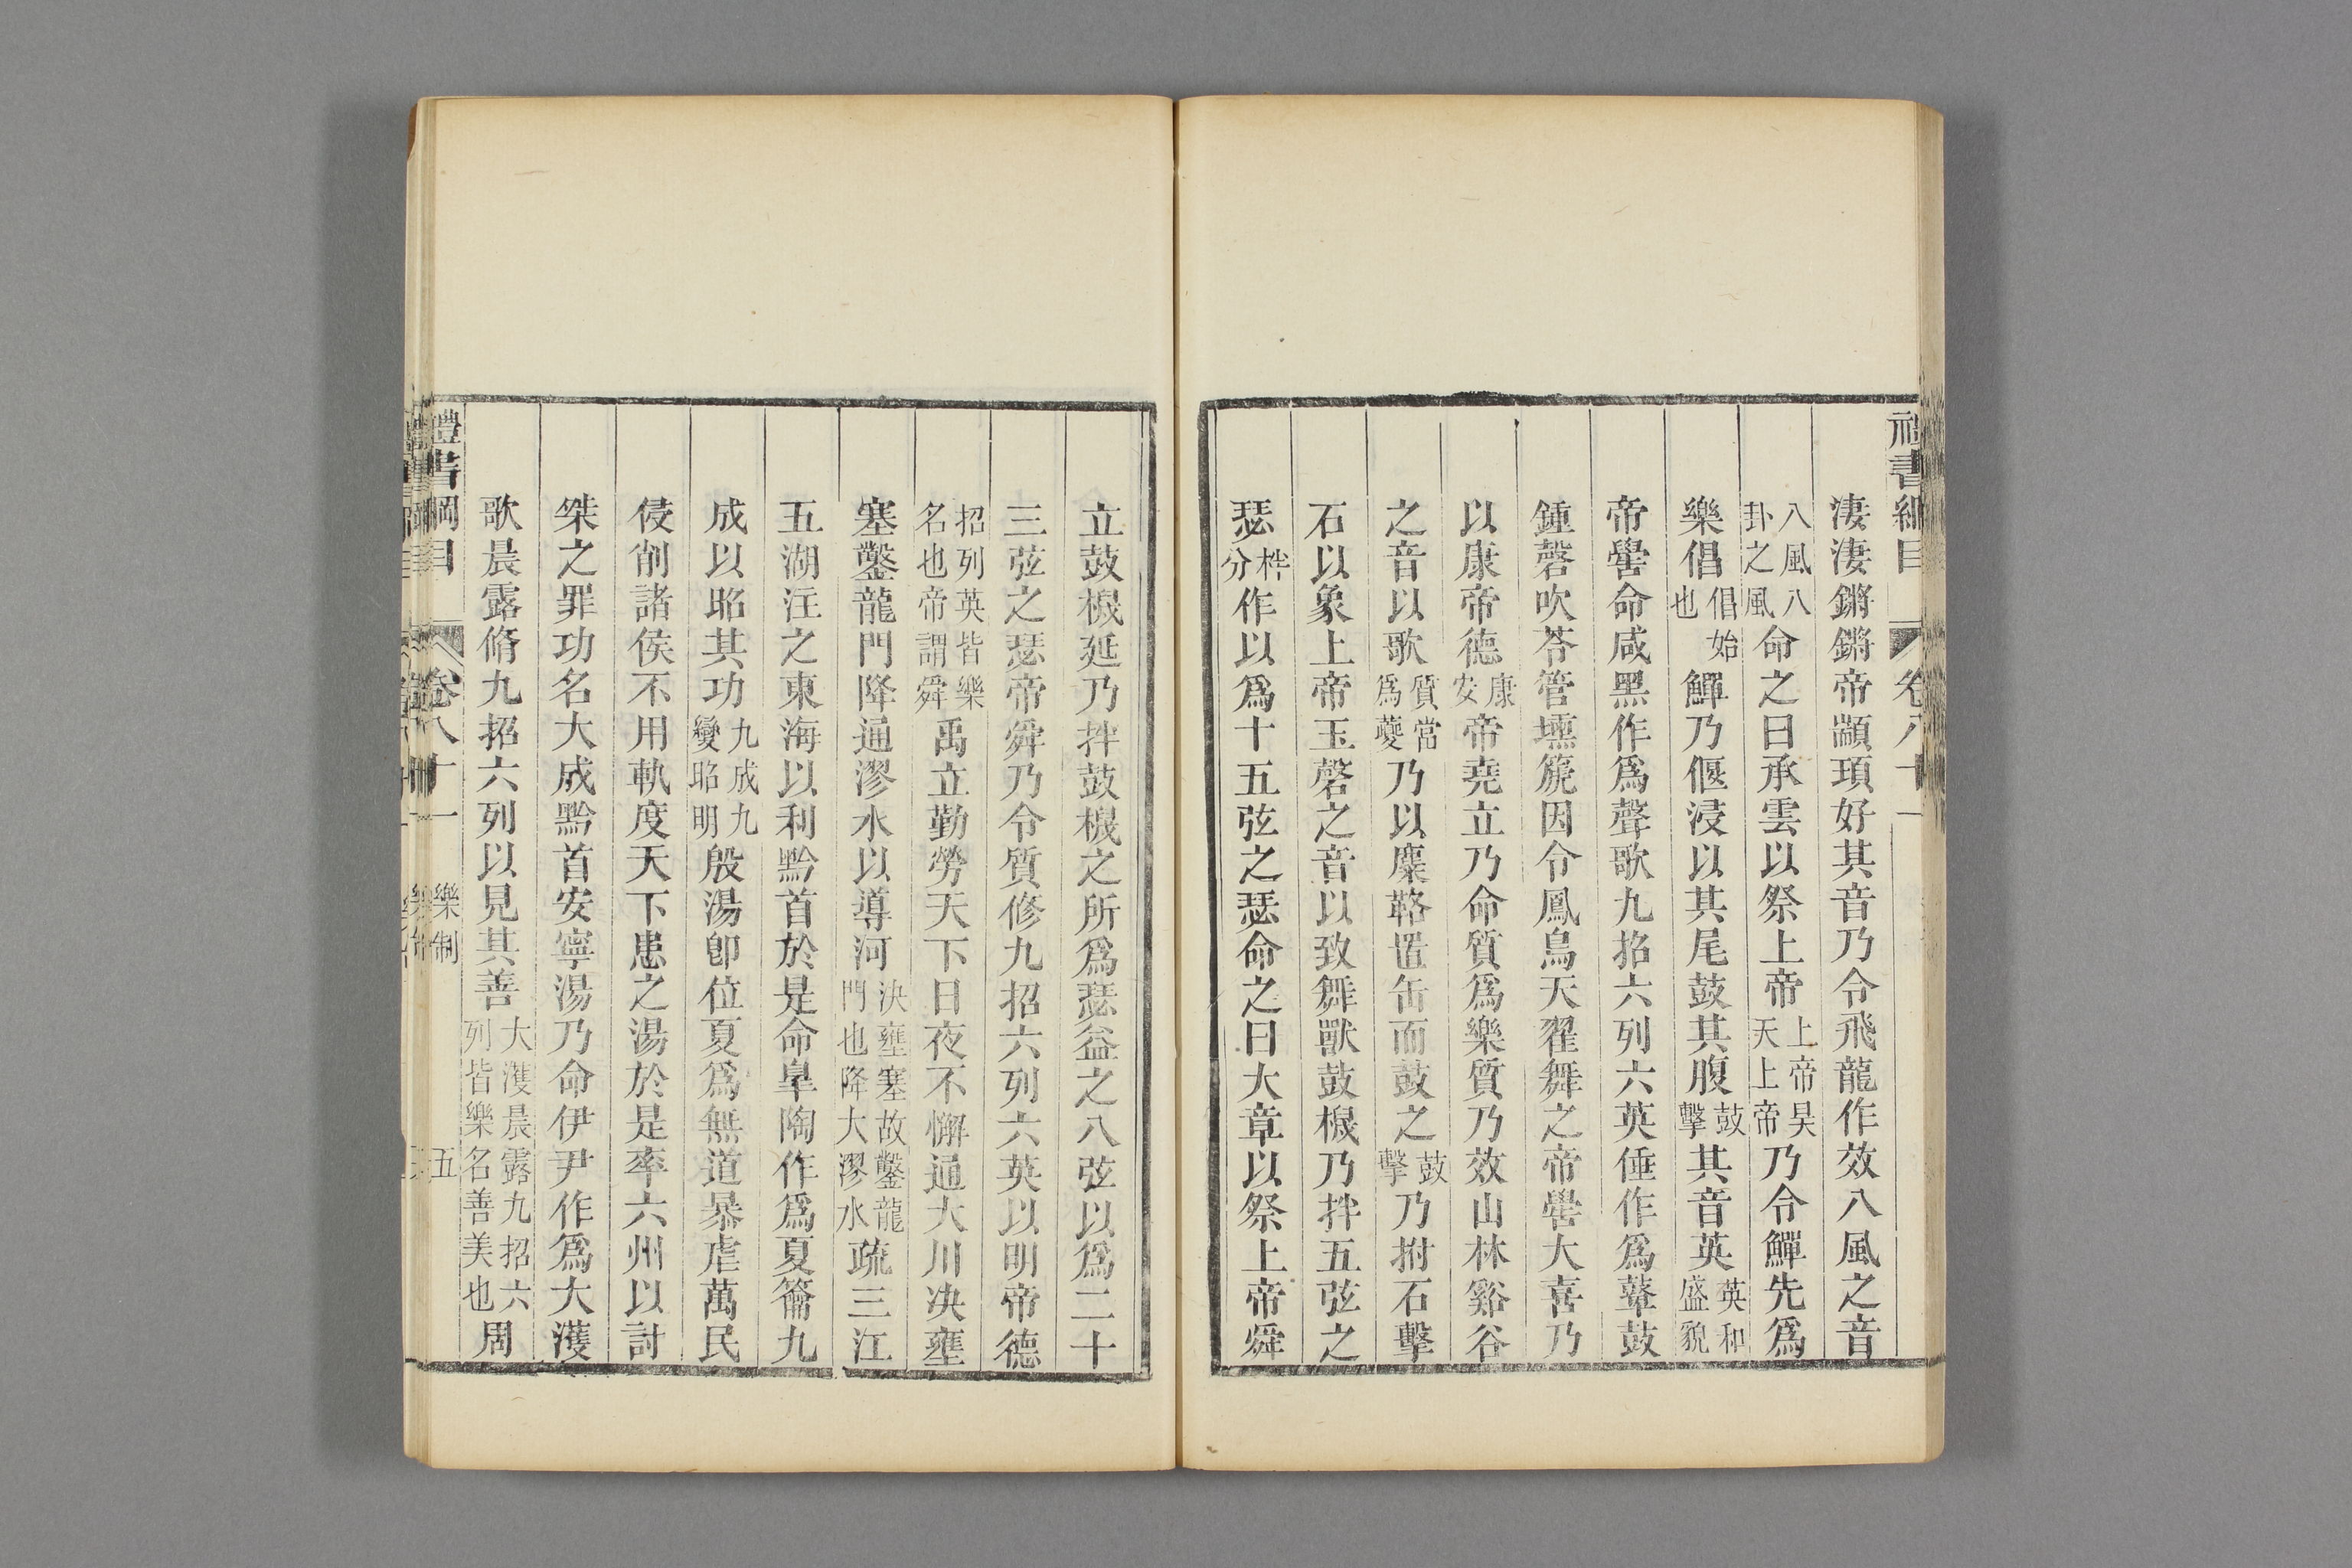 禮書綱目 卷八十一
淒淒鏘鏘帝顓頊好其音乃令飛龍作效八風之音
八風八卦之風命之曰承雲以祭上帝上帝昊天上帝乃令鱓先爲
樂倡倡始也鱓乃偃浸以其尾鼓其腹鼓擊其音英英和盛貌
帝嚳命咸黑作爲聲歌九招六列六英倕作爲鼙鼓
鍾磬吹苓管壎箎因令鳳鳥天翟舞之帝嚳大喜乃
以康帝德康安帝堯立乃命質爲樂質乃效山林谿谷
之音以歌質當爲夔乃以麋䩭置缶而鼓之鼓擊乃拊石擊
石以象上帝玉磬之音以致舞獸鼓乃拌五弦之
瑟柈分作以爲十五弦之瑟命之曰大章以祭上帝舜
立鼓延乃拌鼓之所爲瑟益之八弦以爲二十
三弦之瑟帝舜乃令質修九招六列六英以明帝德
招列英皆樂名也帝謂舜禹立勤勞天下日夜不懈通大川決壅
塞鑿龍門降通漻水以導河決壅塞故鑿龍門也降大漻水疏三江
五湖注之東海以利黔首於是命臯陶作爲夏籥九
成以昭其功九成九變昭明殷湯卽位夏爲無道暴虐萬民
侵削諸侯不用軌度天下患之湯於是率六州以討
桀之罪功名大成黔首安寧湯乃命伊尹作爲大濩
歌晨露脩九招六列以見其善大濩晨露九招六列皆樂名善美也周
禮書綱目 卷八十一 樂制 五